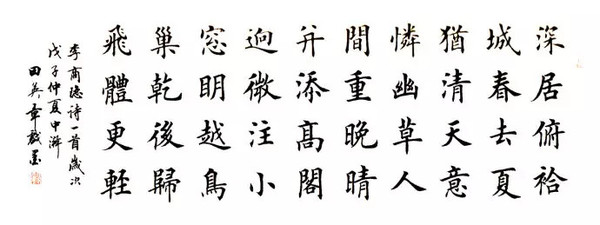 深居俯袷
城春去夏
猶清天意
憐幽草人
間重晚晴
并添髙閣
迥微注小
窓眀越鳥
巢乾後歸
飛體更輕
李商隱詩一首歲次
戊子仲夏中澣
田英章